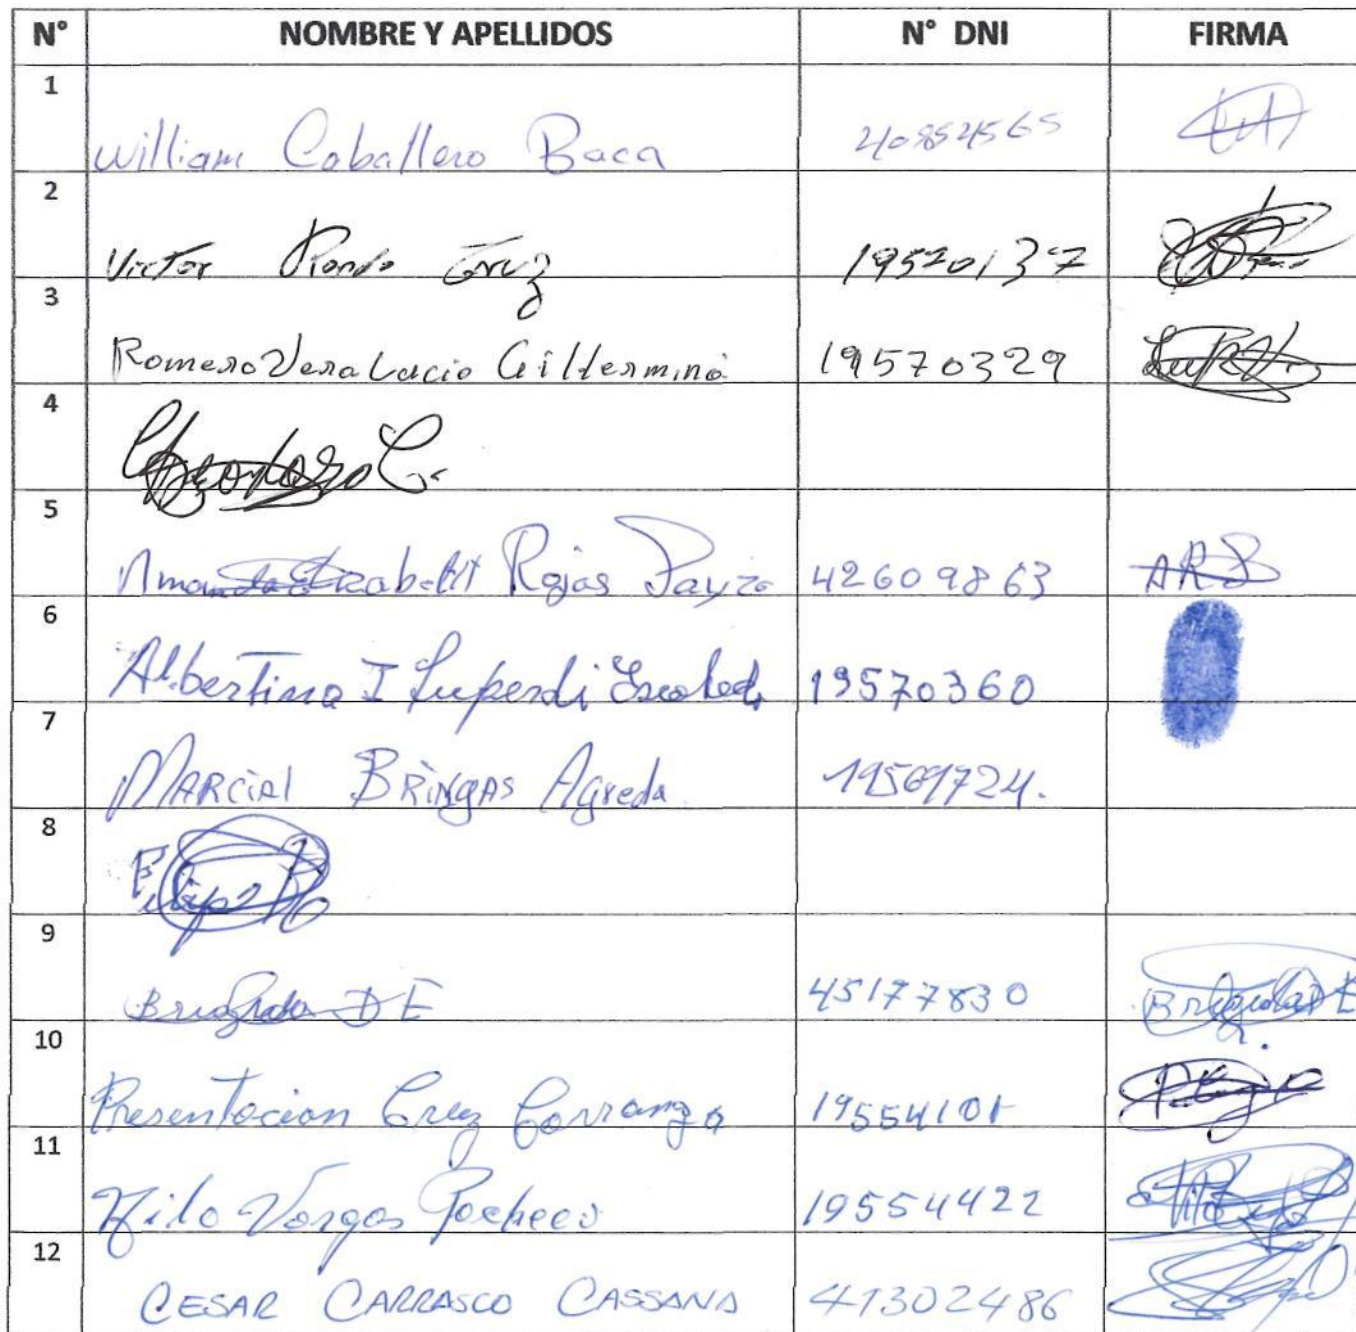 N° NOMBRE Y APELLIDOS N° DNI FIRMA
1 William Caballero Baca 40852565
2 Victor Cruz 19570137
3 Romero Vera Lucio Guillermino 19570329
4
5 Rojas 42609863 ARS
6 Albertina I Luperdi 19570360
7 MARCIAL BRINGAS Agreda 19569724.
8
9 Brigida D E 45177830
10 Presentacion Cruz Carranza 19554101
11 Vargas Pacheco 19554422
12 CESAR CARRASCO CASSANA 41302486